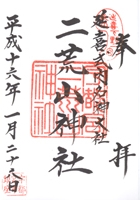 奉拝
延喜式内名神大社
二荒山神社
平成十六年一月二十八日